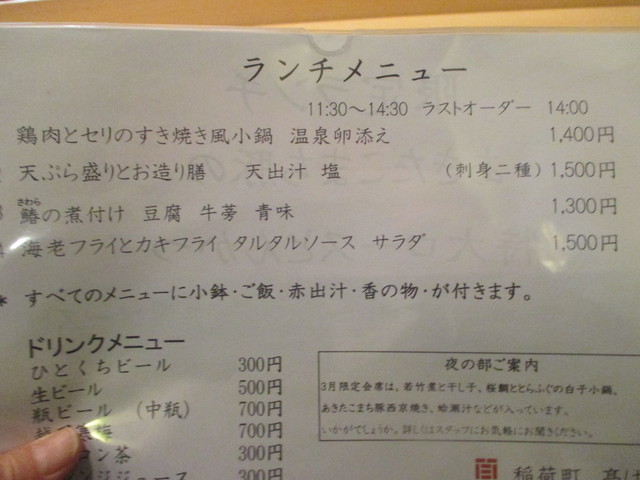 ランチメニュー
11:30～14:30 ラストオーダー 14:00
鶏肉とセリのすき焼き風小鍋 温泉卵添え 1,400円
天ぷら盛りとお造り膳 天出汁 塩 (刺身二種) 1,500円
さわら
鰆の煮付け 豆腐 牛蒡 青味 1,300円
海老フライとカキフライ タルタルソース サラダ 1,500円
* すべてのメニューに小鉢・ご飯・赤出汁・香の物・が付きます。
ドリンクメニュー
ひとくちビール 300円
生ビール 500円
瓶ビール (中瓶) 700円
700円
コン茶 300円
ジジュース 300円
夜の部ご案内
3月限定会席は、若竹煮と干し子、桜鯛ととらふぐの白子小鍋、
あきたこまち豚西京焼き、蛤潮汁などが入っています。
いかがでしょうか。詳しくはスタッフにお気軽にお聞きください。
稲荷町